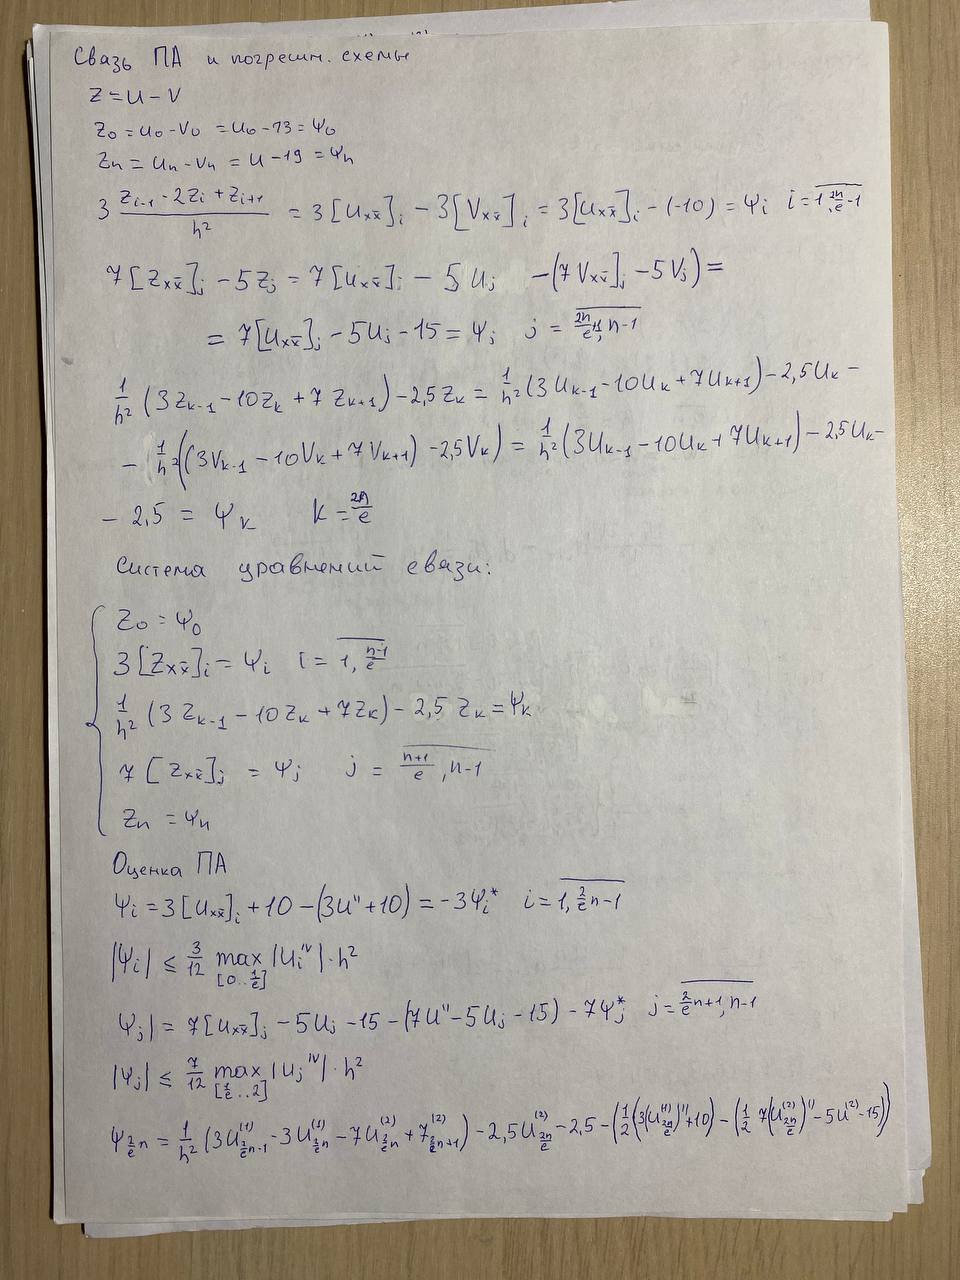 Связь ПА и погрешн. схемы
Z = U − V
Z₀ = U₀ − V₀ = U₀ − 13 = Ψ₀
Zₙ = Uₙ − Vₙ = U − 19 = Ψₙ
3 (Z_{i-1} - 2Z_i + Z_{i+1})/h² = 3[U_{xx̄}]_i − 3[V_{xx̄}]_i = 3[U_{xx̄}]_i − (-10) = Ψ_i i = \overline{1, 2n/e − 1}
7[Z_{xx̄}]_j − 5Z_j = 7[U_{xx̄}]_j − 5U_j − (7V_{xx̄}]_j − 5V_j) =
= 7[U_{xx̄}]_j − 5U_j − 15 = Ψ_j j = \overline{2n/e +1, n-1}
1/h² (3Z_{k-1} − 10Z_k + 7Z_{k+1}) − 2,5Z_k = 1/h² (3U_{k-1} − 10U_k + 7U_{k+1}) − 2,5U_k −
− 1/h² ((3V_{k-1} − 10V_k + 7V_{k+1}) − 2,5V_k) = 1/h² (3U_{k-1} − 10U_k + 7U_{k+1}) − 2,5U_k −
− 2,5 = Ψ_k k = 2n/e
Система уравнений связи:
Z₀ = Ψ₀
3[Z_{xx̄}]_i = Ψ_i i = \overline{1, n-1/e}
1/h² (3Z_{k-1} − 10Z_k + 7Z_k) − 2,5 Z_k = Ψ_k
7[Z_{xx̄}]_j = Ψ_j j = \overline{n+1/e, n-1}
Zₙ = Ψₙ
Оценка ПА
Ψ_i = 3[U_{xx̄}]_i + 10 − (3U'' + 10) = −3Ψ_i^* i = \overline{1, 2/e n − 1}
|Ψ_i| ≤ 3/12 max_{[0..1/e]} |U_i^{IV}| · h²
Ψ_j| = 7[U_{xx̄}]_j − 5U_j − 15 − (7U'' − 5U_j − 15) − 7Ψ_j^* j = \overline{2/e n+1, n-1}
|Ψ_j| ≤ 7/12 max_{[1/e..2]} |U_j^{IV}| · h²
Ψ_{2/e n} = 1/h² (3U^{(1)}_{2/e n-1} − 3U^{(1)}_{2/e n} − 7U^{(2)}_{2/e n} + 7^{(2)}_{2/e n+1}) − 2,5U^{(2)}_{2n/e} − 2,5 − (1/2 (3(U^{(1)}_{2n/e})'' + 10) − (1/2 7(U^{(2)}_{2n/e})'' − 5U^{(2)} − 15))